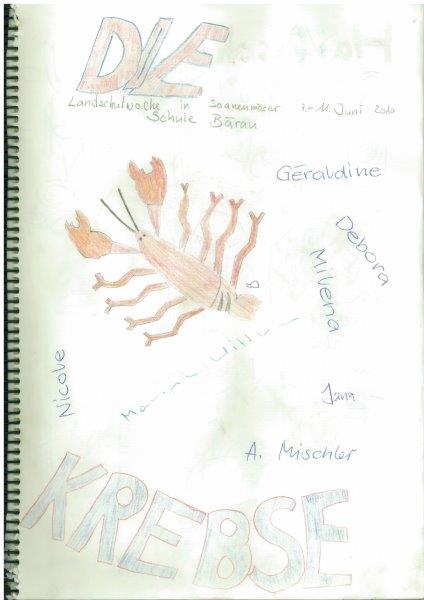 DIE
Landschulwoche in Saanenmöser 7.-11. Juni 2010
Schule Bärau
Géraldine
Debora
Milena
Nicole
Jana
A. Mischler
KREBSE